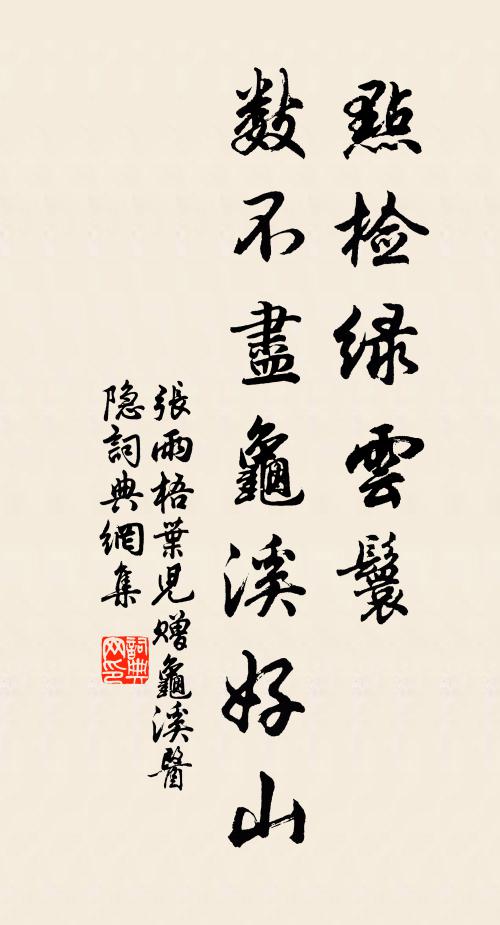 點检緑雲鬟
數不盡龜溪好山
張雨梧葉児赠龜溪醫
隐詞典網集
詞典
网印